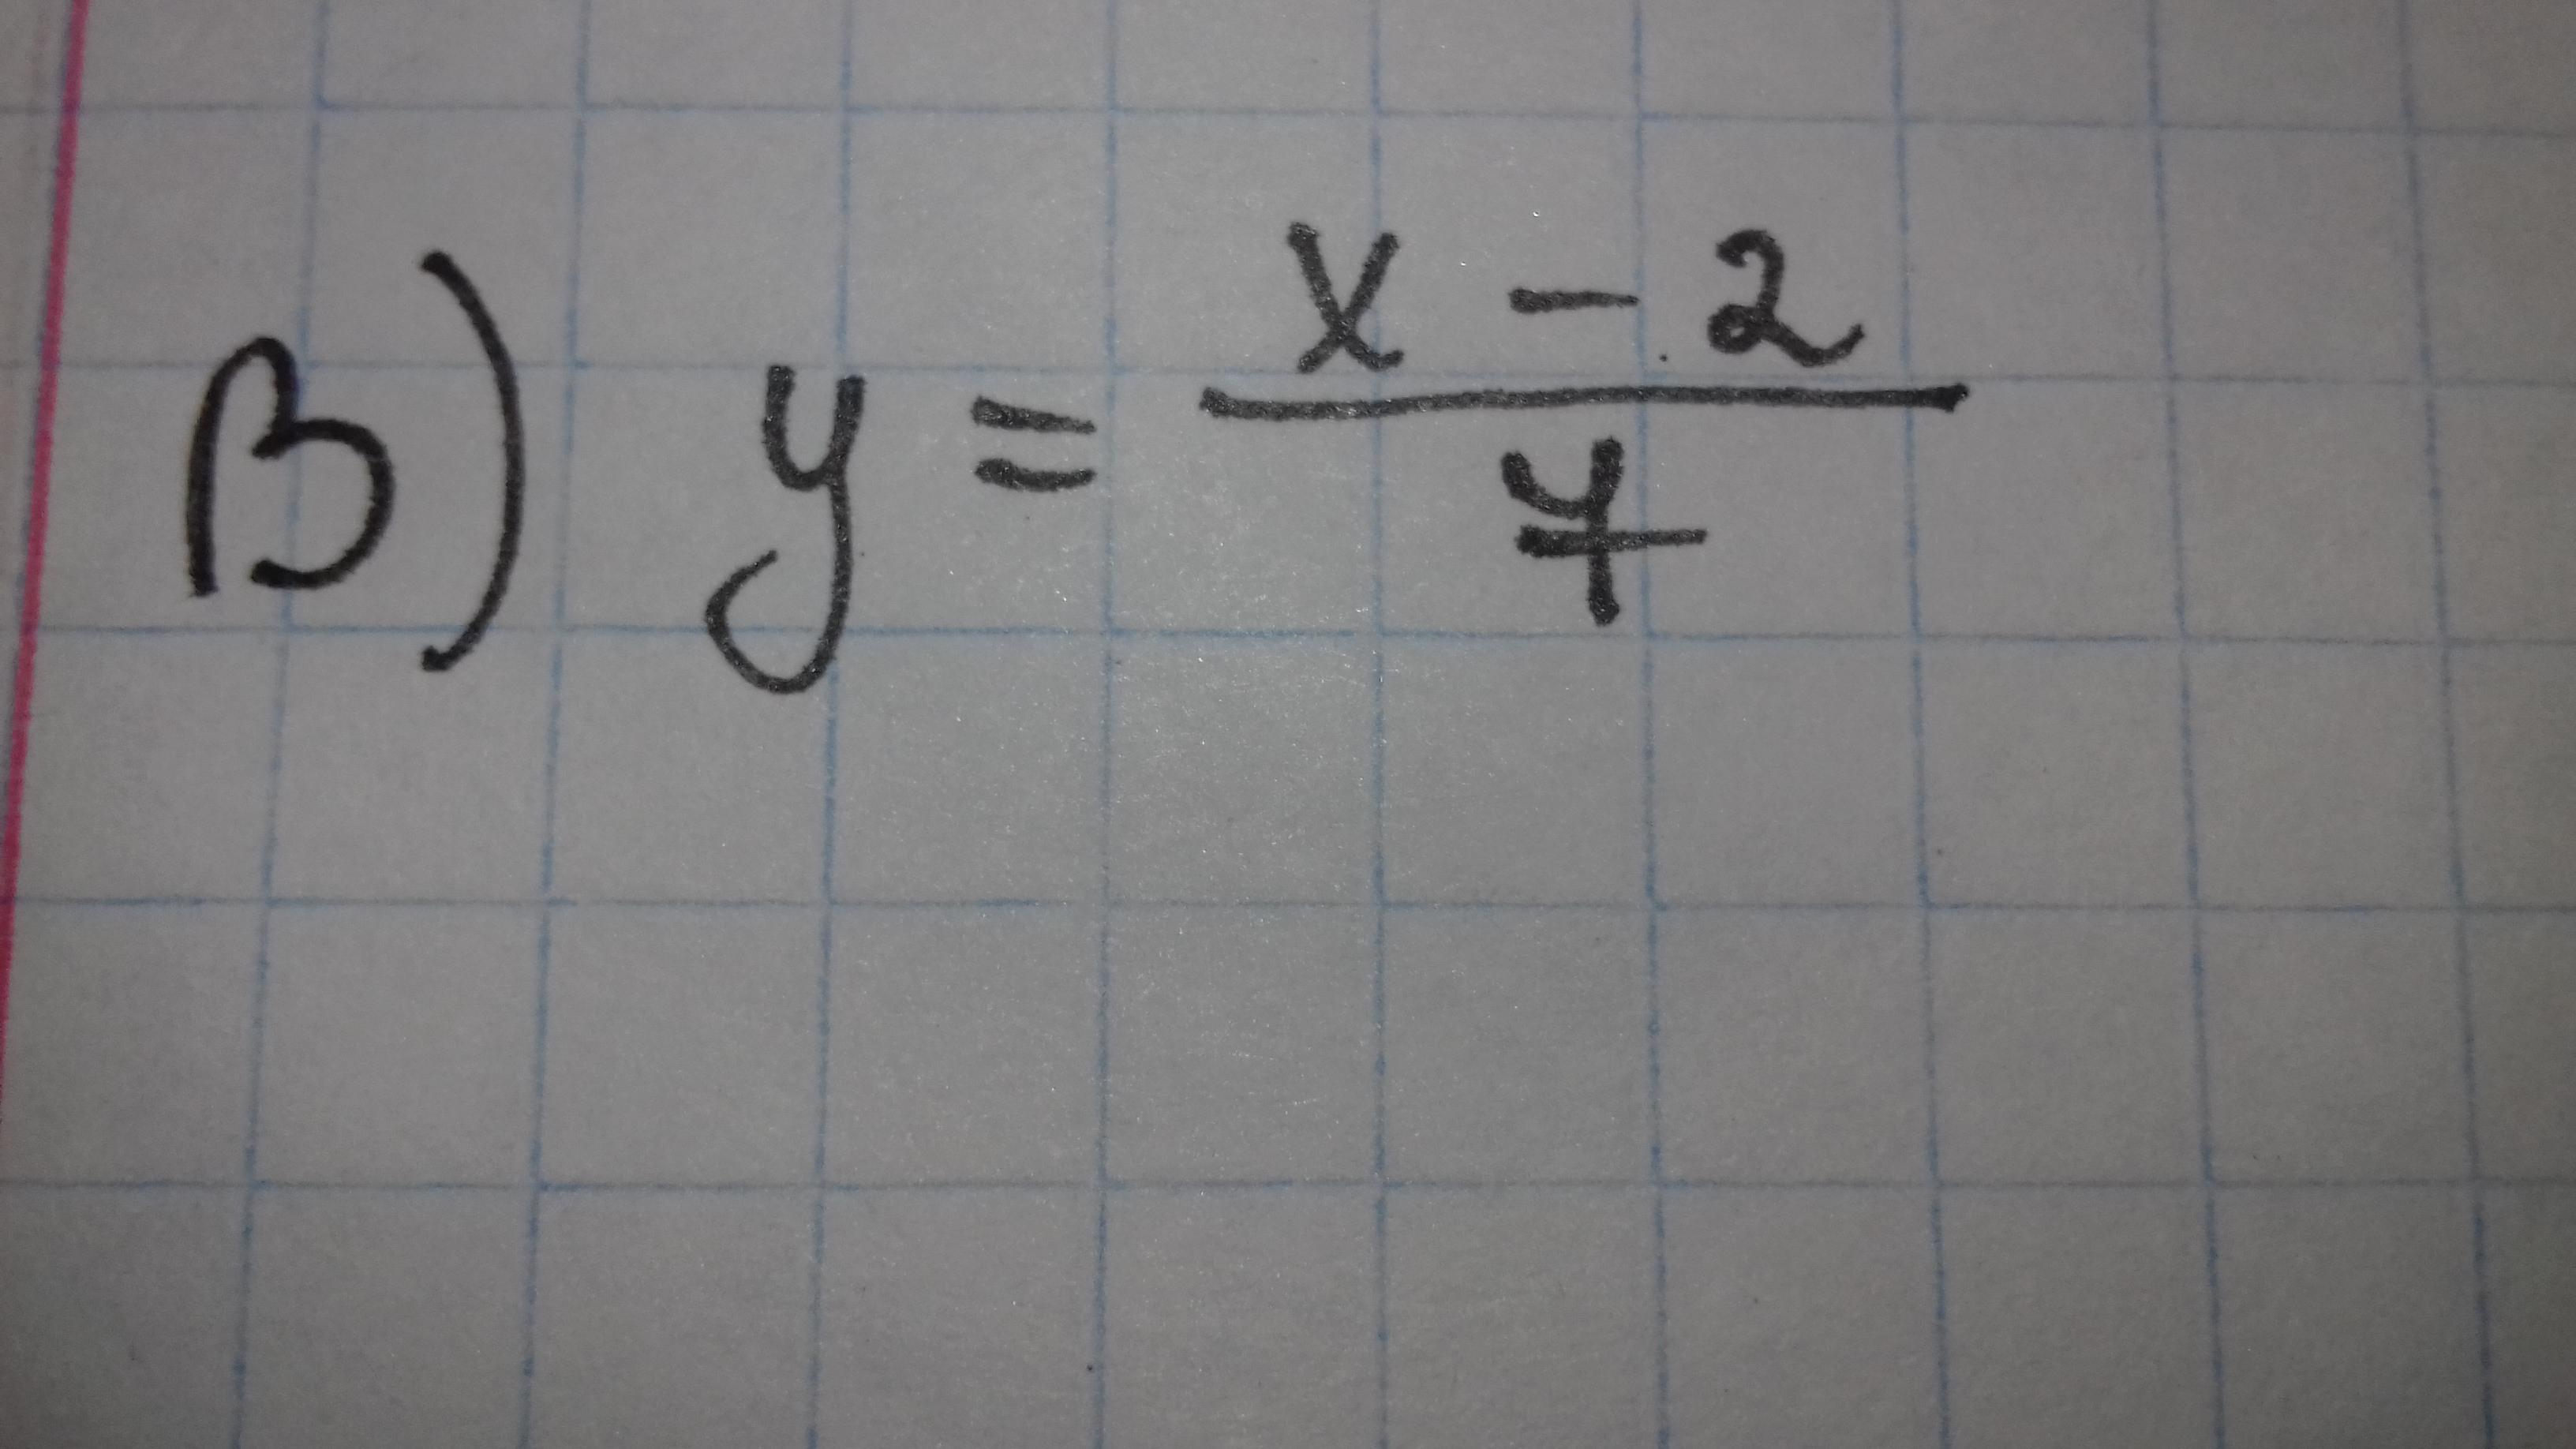 В) y = \frac{x - 2}{7}